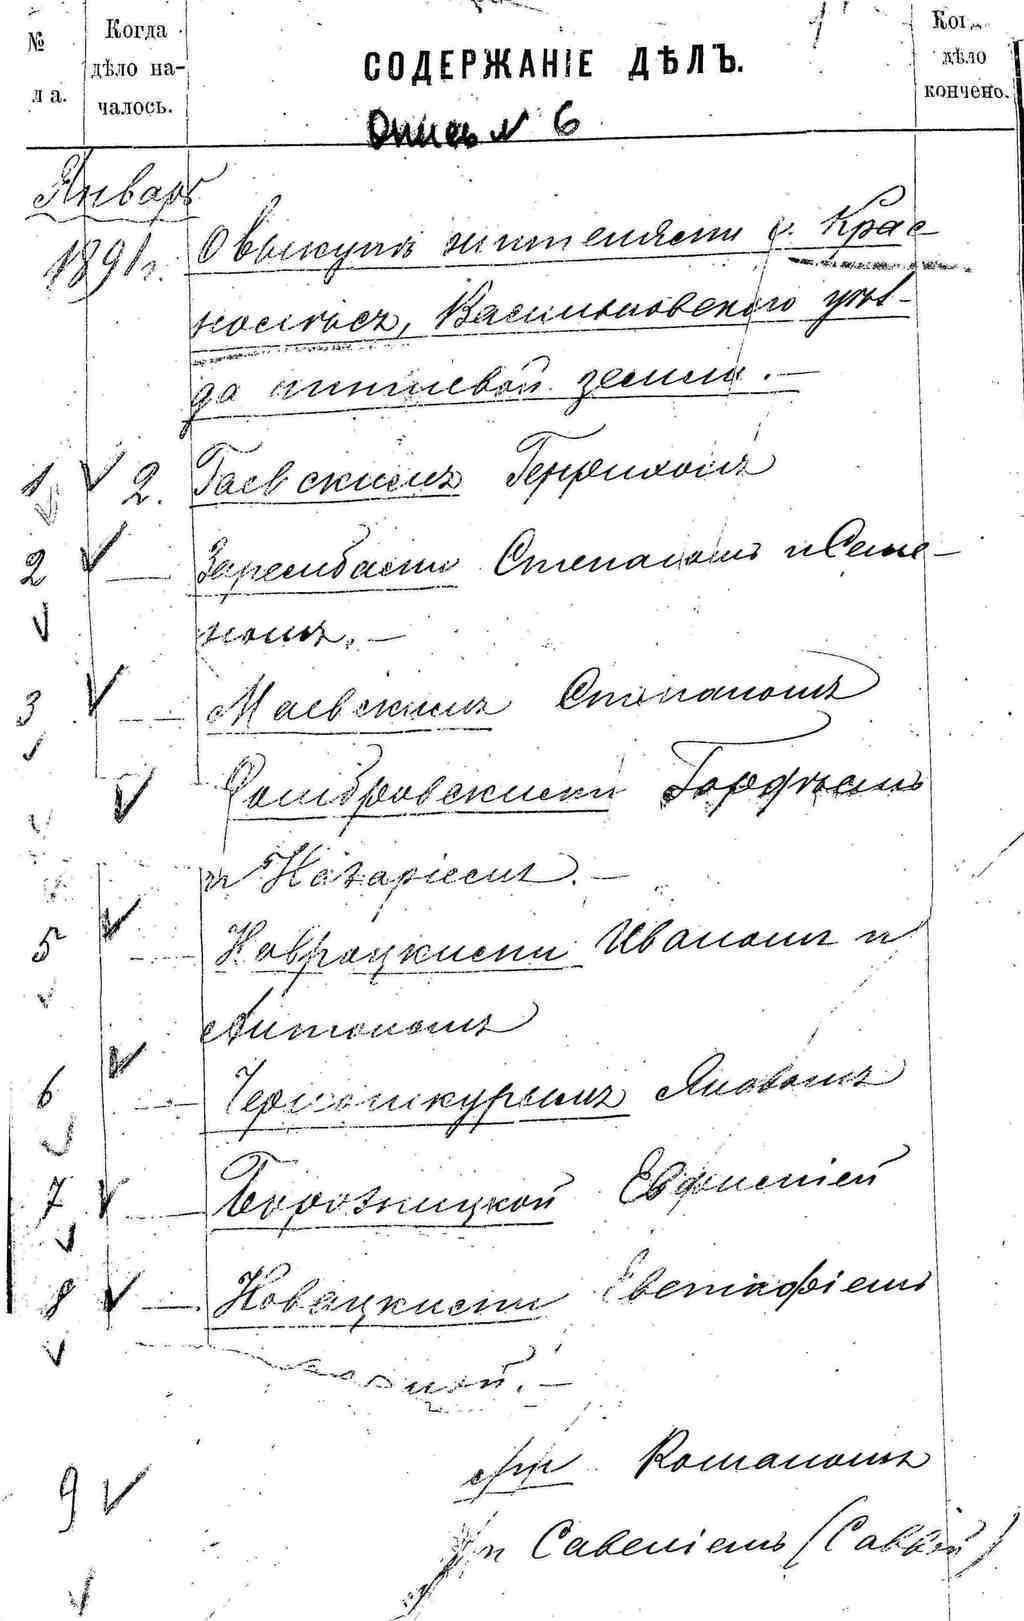 №
ла.
Когда
дѣло на-
чалось.
СОДЕРЖАНІЕ ДѢЛЪ.
Опись № 6
дѣло
кончено.
Январь
1891 г.
О выкупѣ жителями с. Крас
носѣльс, Васильковского уѣз-
да чиншевой земли. —
1 2. Гаевскимъ Генрихомъ
2 — Зарембами Степаномъ и Семе-
номъ. —
3 — Маевскимъ Степаномъ
Домбровскими Гордѣемъ
и Назаріемъ. —
5 — Навроцкими Иваномъ и
Антономъ
6 — Черношкурымъ Яковомъ
7 — Борозницкой Евфиміей
8 — Новацкими Евстафіемъ
9 Романомъ
и Савеліемъ (Саввой)